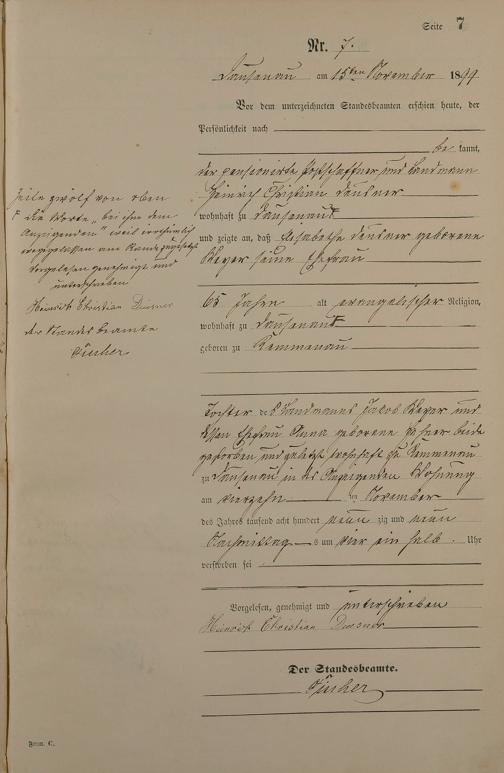 Seite 7
Nr. 7.
Dausenau am 15ten November 1899
Vor dem unterzeichneten Standesbeamten erschien heute, der
Persönlichkeit nach
be kannt,
der pensionirte Postschaffner und Landmann
Heinrich Christian
wohnhaft zu Dausenau
und zeigte an, daß Elisabethe geborene
seine Ehefrau
65 Jahren alt evangelischer Religion,
wohnhaft zu Dausenau
geboren zu Kemmenau
Tochter des Landmanns Jacob und
dessen Ehefrau Anna geborene beide
gestorben und zuletzt wohnhaft zu Kemmenau
zu Dausenau in des Anzeigenden Wohnung
am vierzehn ten November
des Jahres tausend acht hundert neun zig und neun
Nachmittag s um vier ein halb Uhr
verstorben sei
Vorgelesen, genehmigt und unterschrieben
Heinrich Christian
Der Standesbeamte.
Zeile zwölf von oben
die Worte „bei ihm dem
Anzeigenden" weil irrthümlich
am Rande zugesetzt
Vorgelesen genehmigt und
unterschrieben
Heinrich Christian
der Standesbeamte
Form. C.